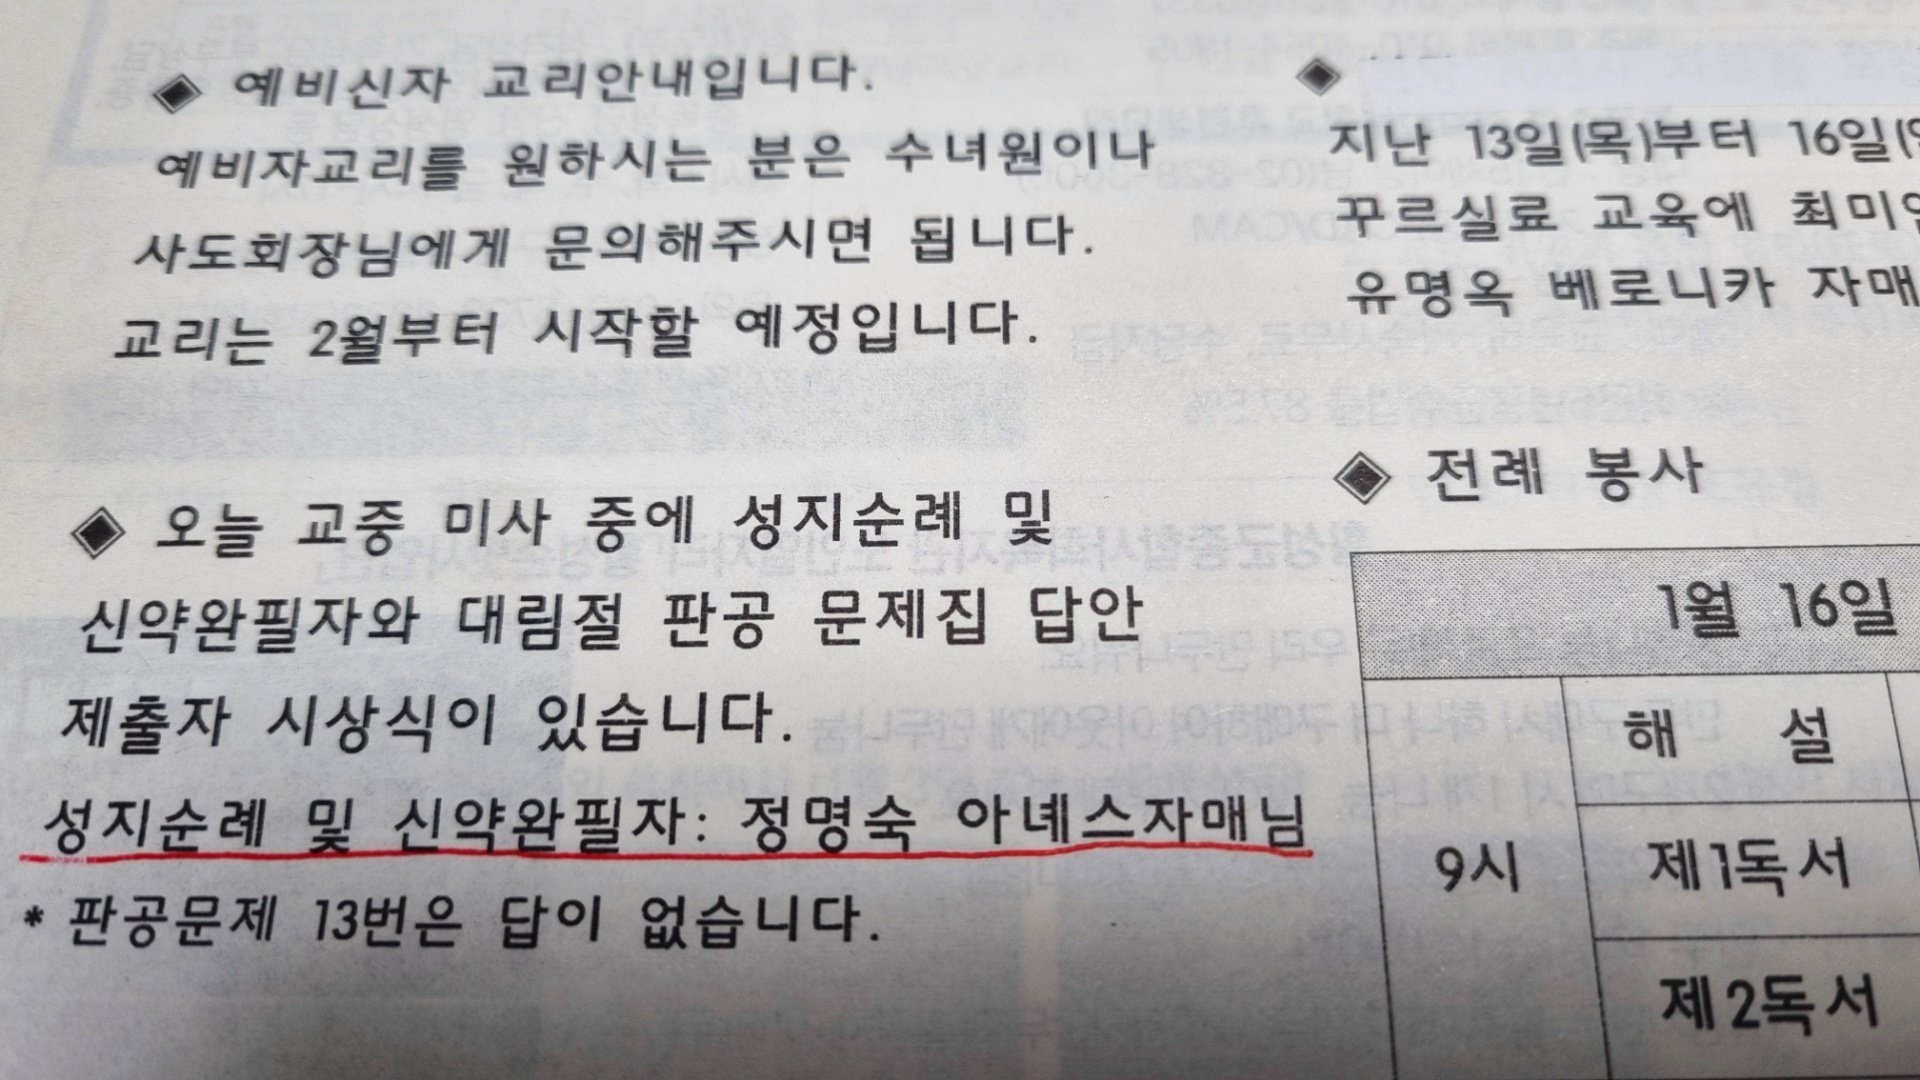 ◈ 예비신자 교리안내입니다.
예비자교리를 원하시는 분은 수녀원이나
사도회장님에게 문의해주시면 됩니다.
교리는 2월부터 시작할 예정입니다.
◈ 오늘 교중 미사 중에 성지순례 및
신약완필자와 대림절 판공 문제집 답안
제출자 시상식이 있습니다.
성지순례 및 신약완필자: 정명숙 아녜스자매님
* 판공문제 13번은 답이 없습니다.
◈
지난 13일(목)부터 16일(
꾸르실료 교육에 최미
유명옥 베로니카 자매
◈ 전례 봉사
1월 16일
9시
해 설
제1독서
제2독서